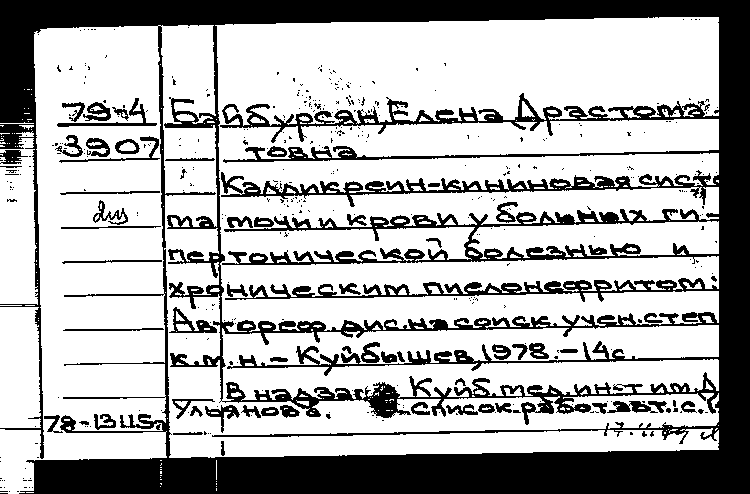 79-4 Байбурсян, Елена Драстома-
3907 товна.
Калликреин-кининовая систе
ма мочи и крови у больных ги-
пертонической болезнью и
хроническим пиелонефритом:
Автореф. дис. на соиск. учен. степ
к.м.н. - Куйбышев, 1978. - 14с.
В надзаг Куйб. мед. инст им. Д
Ульянова. Список работ авт.: с.
78-13115а